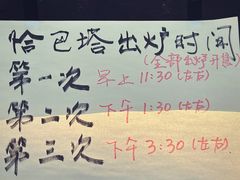 恰巴塔出炉时间
(全部出炉开售)
第一次 早上 11:30 (左右)
第二次 下午 1:30 (左右)
第三次 下午 3:30 (左右)